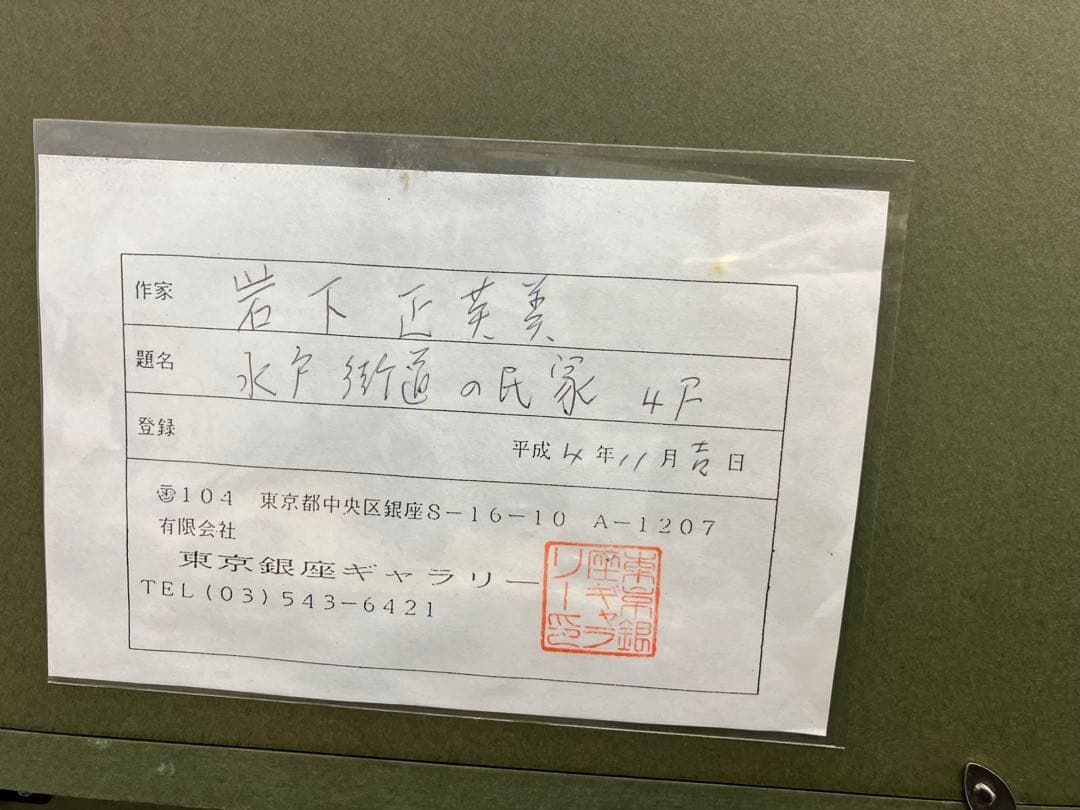 作家 岩下正英美
題名 水戸街道の民家 4F
登録 平成4年11月吉日
〠104 東京都中央区銀座8-16-10 A-1207
有限会社
東京銀座ギャラリー
TEL(03)543-6421
東京銀
座ギャラ
リー印